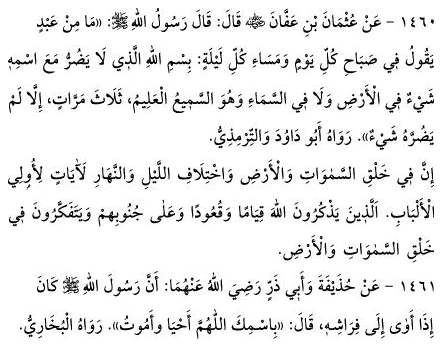 ١٤٦٠ - عَنْ عُثْمَانَ بْنِ عَفَّانَ ﷺ قَالَ: قَالَ رَسُولُ اللهِ ﷺ: «مَا مِنْ عَبْدٍ
يَقُولُ فِي صَبَاحِ كُلِّ يَوْمٍ وَمَسَاءِ كُلِّ لَيْلَةٍ: بِسْمِ اللهِ الَّذِي لَا يَضُرُّ مَعَ اسْمِهِ
شَيْءٌ فِي الْأَرْضِ وَلَا فِي السَّمَاءِ وَهُوَ السَّمِيعُ الْعَلِيمُ، ثَلَاثَ مَرَّاتٍ، إِلَّا لَمْ
يَضُرَّهُ شَيْءٌ». رَوَاهُ أَبُو دَاوُدَ وَالتِّرْمِذِيُّ.
إِنَّ فِي خَلْقِ السَّمٰوَاتِ وَالْأَرْضِ وَاخْتِلَافِ اللَّيْلِ وَالنَّهَارِ لَأٰيَاتٍ لِأُولِي
الْأَلْبَابِ. اَلَّذِينَ يَذْكُرُونَ اللهَ قِيَامًا وَقُعُودًا وَعَلٰى جُنُوبِهِمْ وَيَتَفَكَّرُونَ فِي
خَلْقِ السَّمٰوَاتِ وَالْأَرْضِ.
١٤٦١ - عَنْ حُذَيْفَةَ وَأَبِي ذَرٍّ رَضِيَ اللهُ عَنْهُمَا: أَنَّ رَسُولَ اللهِ ﷺ كَانَ
إِذَا أَوَى إِلَى فِرَاشِهِ، قَالَ: «بِاسْمِكَ اللَّهُمَّ أَحْيَا وَأَمُوتُ». رَوَاهُ الْبُخَارِيُّ.